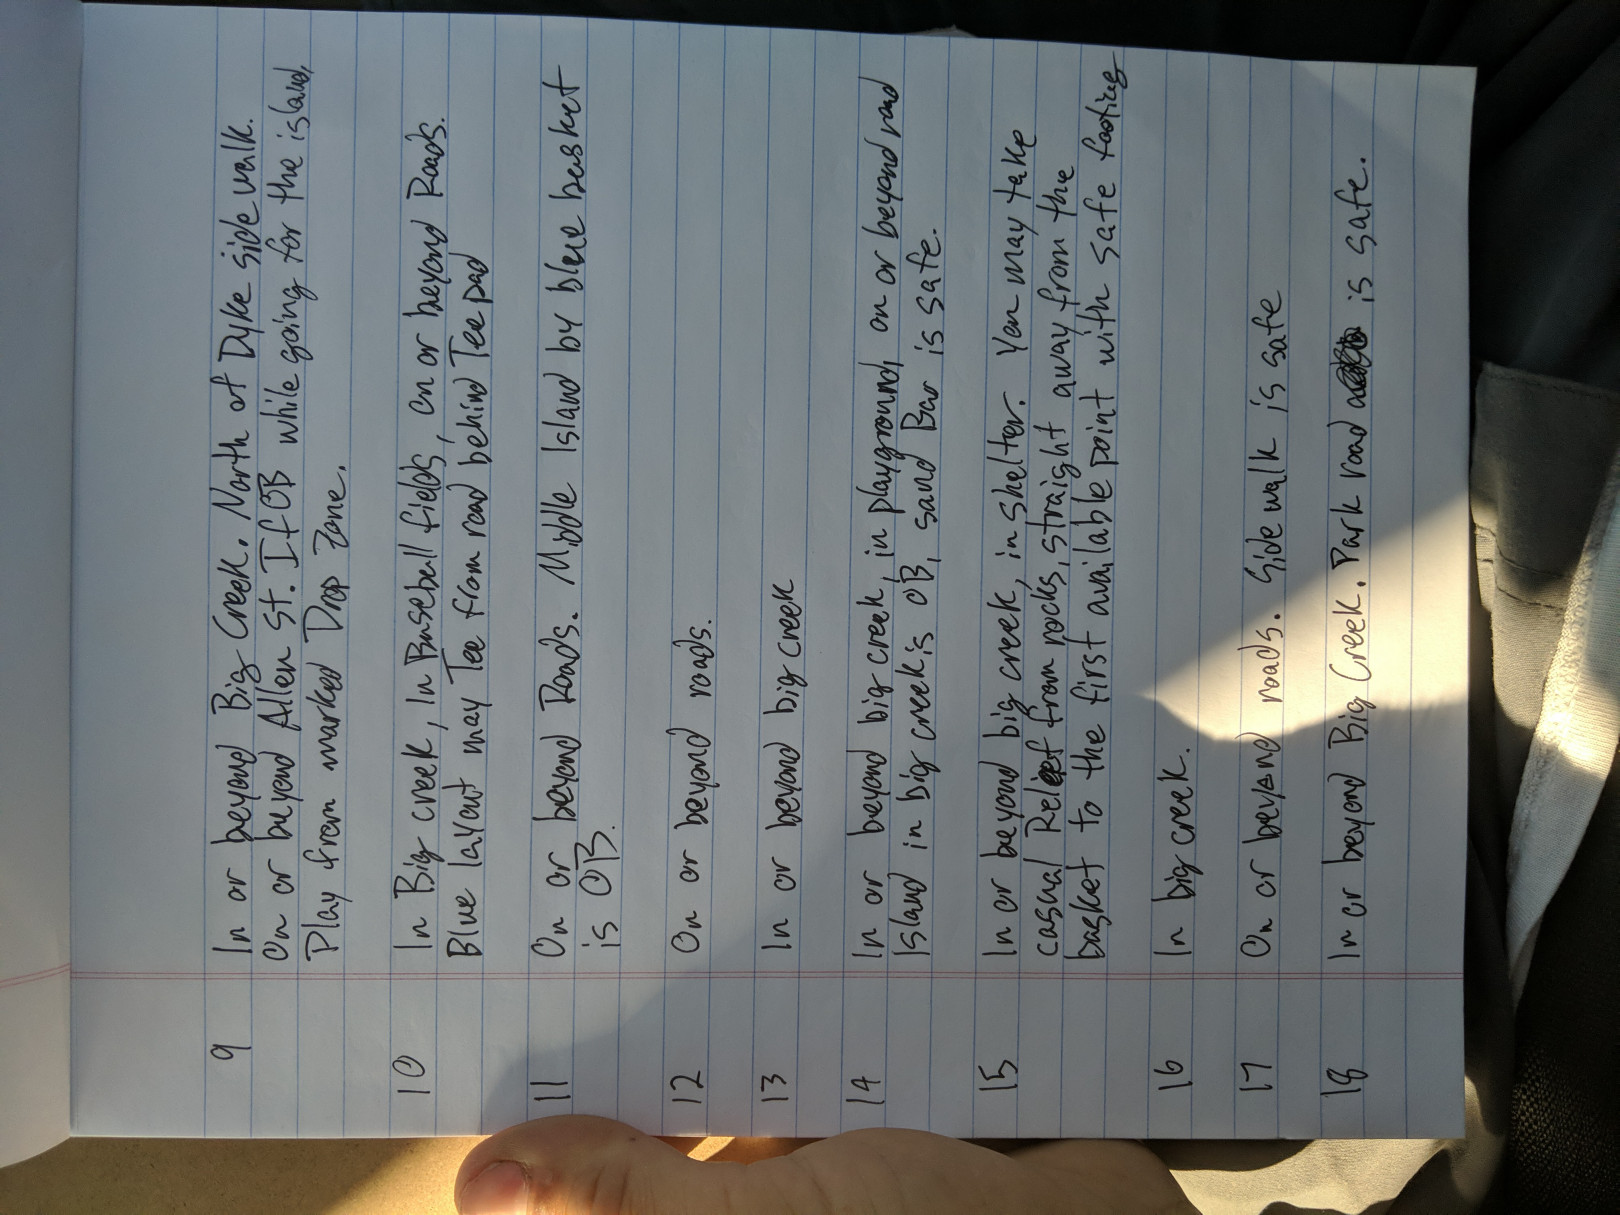 9 In or beyond Big Creek. North of Dyke side walk.
On or beyond Allen St. If OB while going for the island,
Play from marked Drop Zone.
10 In Big creek, In Baseball fields, on or beyond Roads.
Blue layout may Tee from road behind Tee pad
11 On or beyond Roads. Middle Island by blue basket
is OB.
12 On or beyond roads.
13 In or beyond big creek
14 In or beyond big creek, in playground, on or beyond road
Island in big creek is OB, sand Bar is safe.
15 In or beyond big creek, in shelter. You may take
casual Relief from rocks, straight away from the
basket to the first available point with safe footing
16 In big creek.
17 On or beyond roads. Side walk is safe
18 In or beyond Big Creek. Park road is safe.